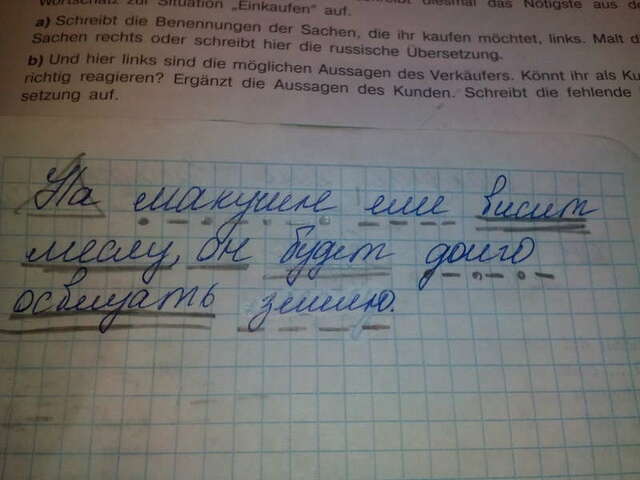 Wortschatz zur Situation „Einkaufen“ auf.
a) Schreibt die Benennungen der Sachen, die ihr kaufen möchtet, links. Malt d
Sachen rechts oder schreibt hier die russische Übersetzung.
b) Und hier links sind die möglichen Aussagen des Verkäufers. Könnt ihr als Ku
richtig reagieren? Ergänzt die Aussagen des Kunden. Schreibt die fehlende
setzung auf.
На макушке ели висит
месяц, он будет долго
освещать землю.